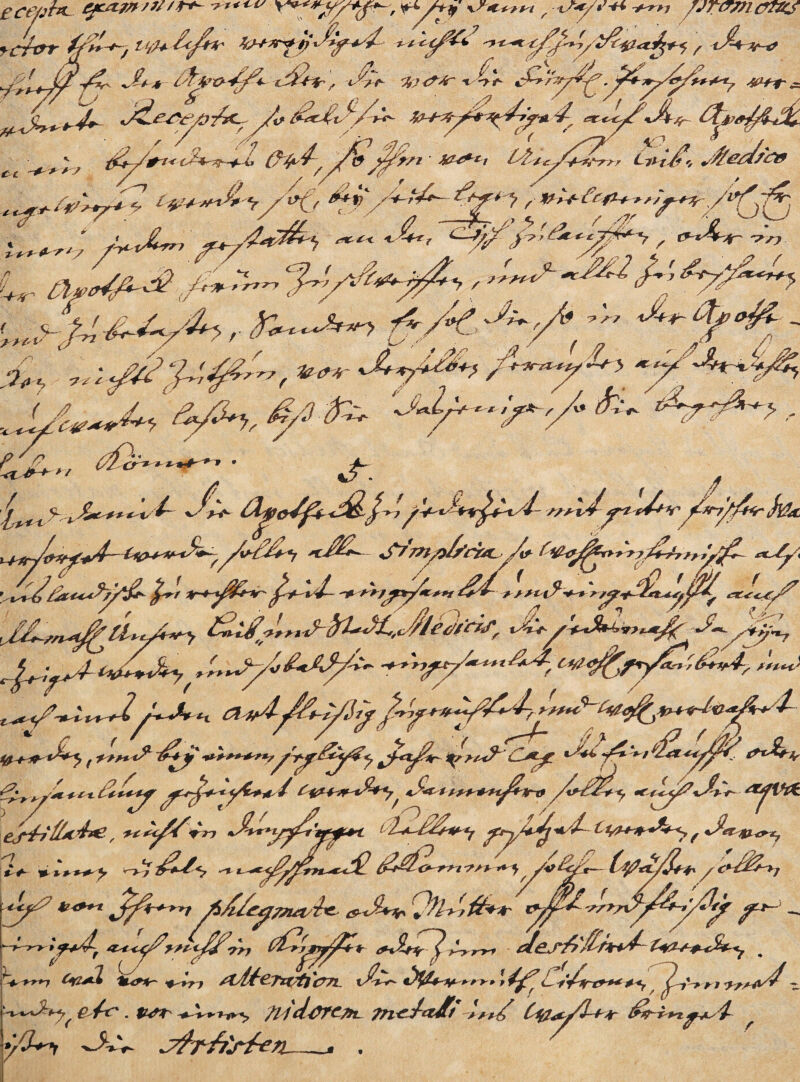 ecepta examinire und durchsehe, es sey dann, daß es ein promotus
octor thue, welcher vereydiget nichts nachzuschwatzen, dero
Er der Apothecker, die vor die Fürstl. Persohnen ver=
rdnete Recepta, sobald sie verfertiget, auf der Apotheck
n ein besonderes Ort, so Ihm von Unserm Leib-Medico
ngewiesen werden sol, bey seite legen, vielweniger sol Er
inem jedem gestatten an den Tisch zulauffen, oder in
der Apotheck herum zuschweiffen, und alles zubeschauen
und zubetasten, Sondern Er sol die, so in der Apothe-
cken nichts zuthun, vor derselben heraußen auf der dehlen
aufwarten laßen, biß Sie dasjenige, so Sie begehren,
haben Können.
5.
Und damit die Apotheck zu jederzeit mit guter frischer Wa
versorget werde, sollen alle simplicia so wohl einheimische als
auslandische zu rechter Zeit eingesamlet und eingekaufft, auch
allemahl Unsern Leib- und Stadt-Medicis, die jedesmahl da seyn
gezeiget werden, und sobald sie eingesamlet, wohl gesaubert, und
nach eines jeden art fleißig zugerichtet, und wohl verwahret
werden, und bey einem jeglichen Jahr und Tag des Einkauffs oder
Einsamlung gezeichnet werden, dannenhero sollen auch die aquæ
estillatæ, nicht in dumpffigen Kellern gesetzet werden, davon
sie einen übeln nachschmack bekommen, solche Wäßer sollen
auch von Ihrem phlegmate oder Mutter offt und fleißig ge-
reiniget, auch nicht in Kupffer oder Zinn destilliret werden.
Denn was vor ein alteration die Wermuth, Citronen, Zimmet=
inden, etc. vor einen nidorem metalli ins Waßer bringet,
wißen die Artisten.